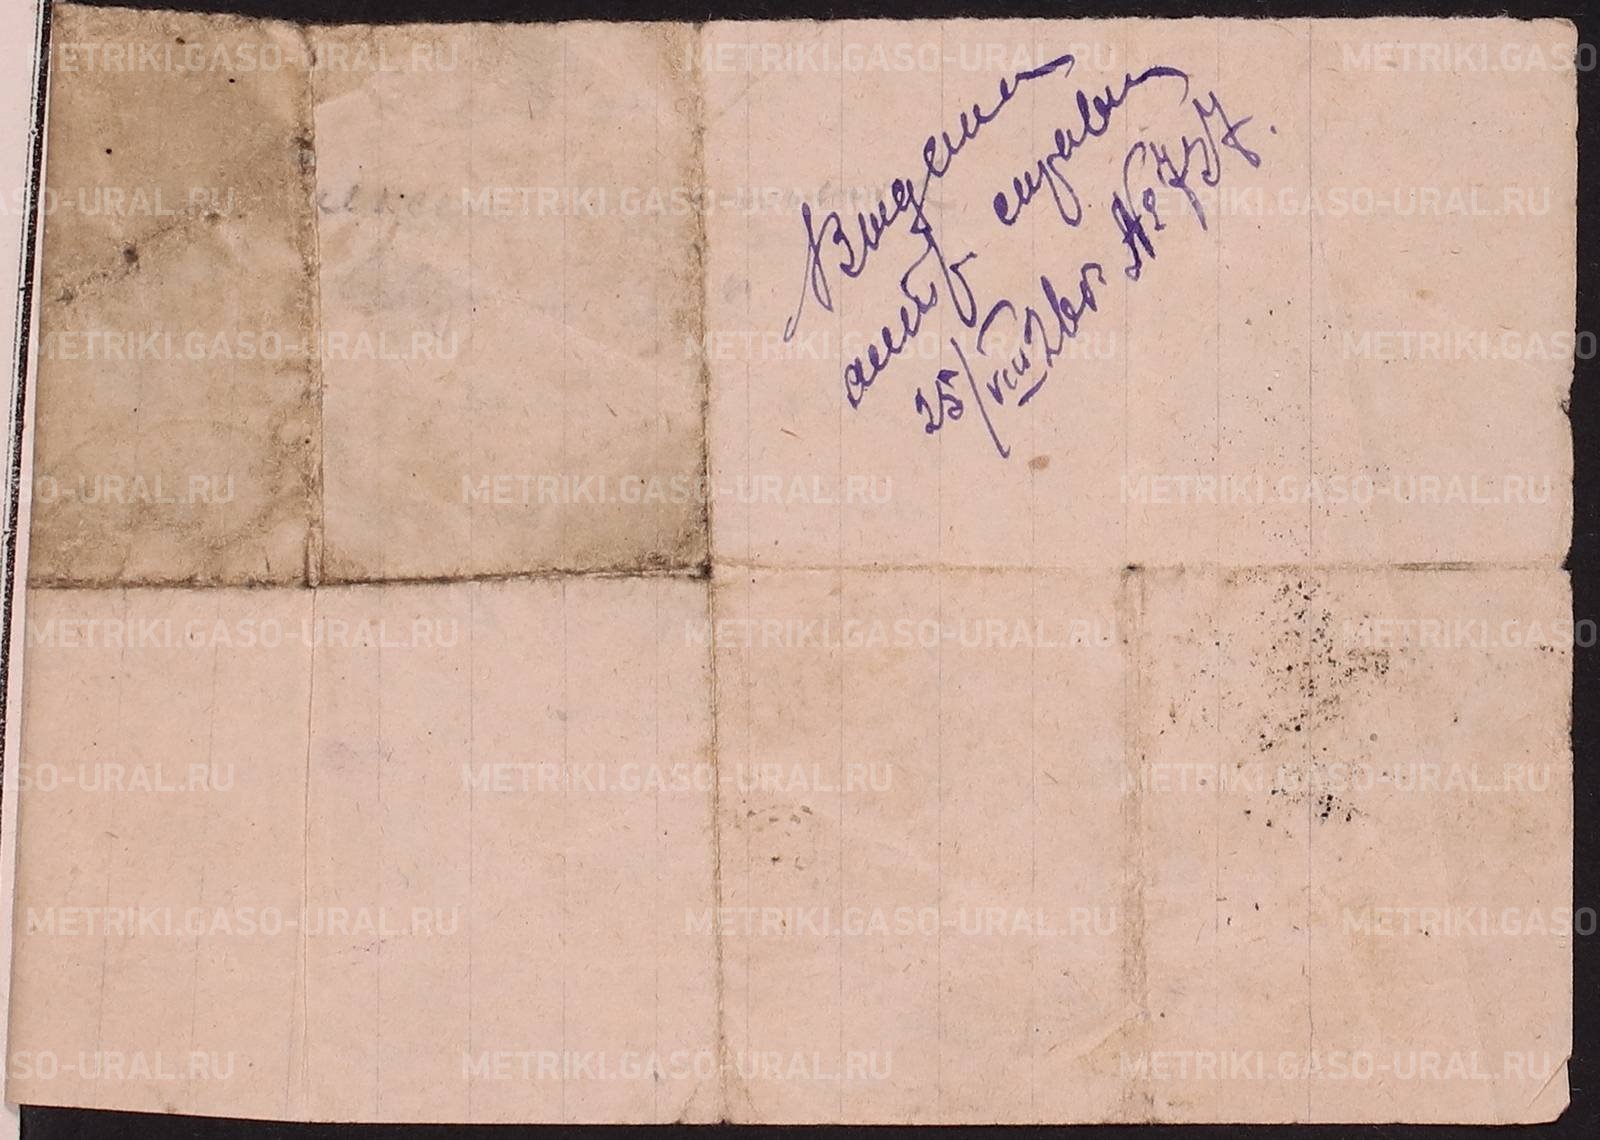 Выдана
метр справк
25/VIII 26 г. № 757.
METRIKI.GASO-URAL.RU